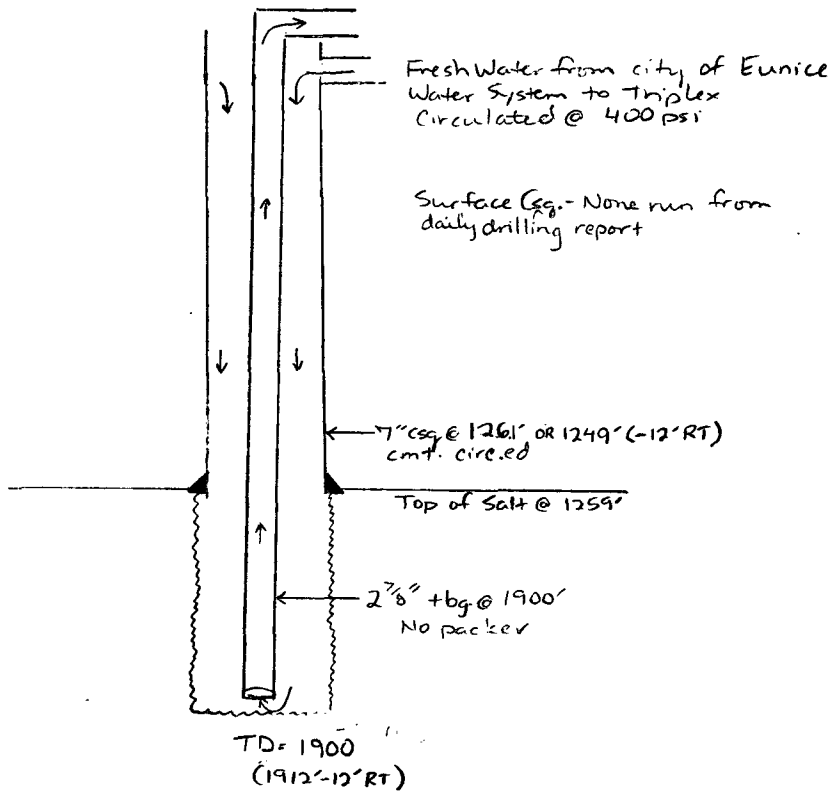 Fresh Water from city of Eunice
Water System to Triplex
Circulated @ 400 psi
Surface Csg. - None run from
daily drilling report
7" csg @ 1261' OR 1249' (-12' RT)
cmt. circ.ed
Top of Salt @ 1259'
2 7/8" tbg @ 1900'
No packer
TD = 1900
(1912'-12' RT)